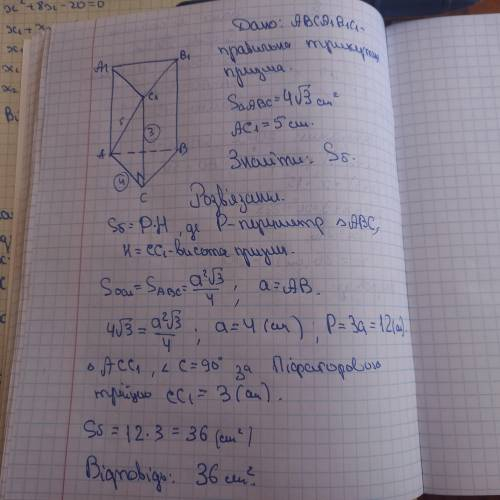 x² + 8x - 20 = 0
x₁ + x
x₁
x₂
Ві
Дано: ABCA₁B₁C₁ -
правильна трикутна
призма.
S△ABC = 4√3 см²
AC₁ = 5 см.
Знайти: Sб.
A₁
B₁
C₁
5
3
A
B
4
C
Розв'язання.
Sб = P·H, де P - периметр △ABC,
H = CC₁ - висота призми.
Sосн = SABC = a²√3/4 ; a = AB.
4√3 = a²√3/4 ; a = 4 (см) ; P = 3a = 12 (см).
△ ACC₁, ∠C = 90° за Піфагоровою
трійкою CC₁ = 3 (см).
Sб = 12 · 3 = 36 (см²)
Відповідь: 36 см².